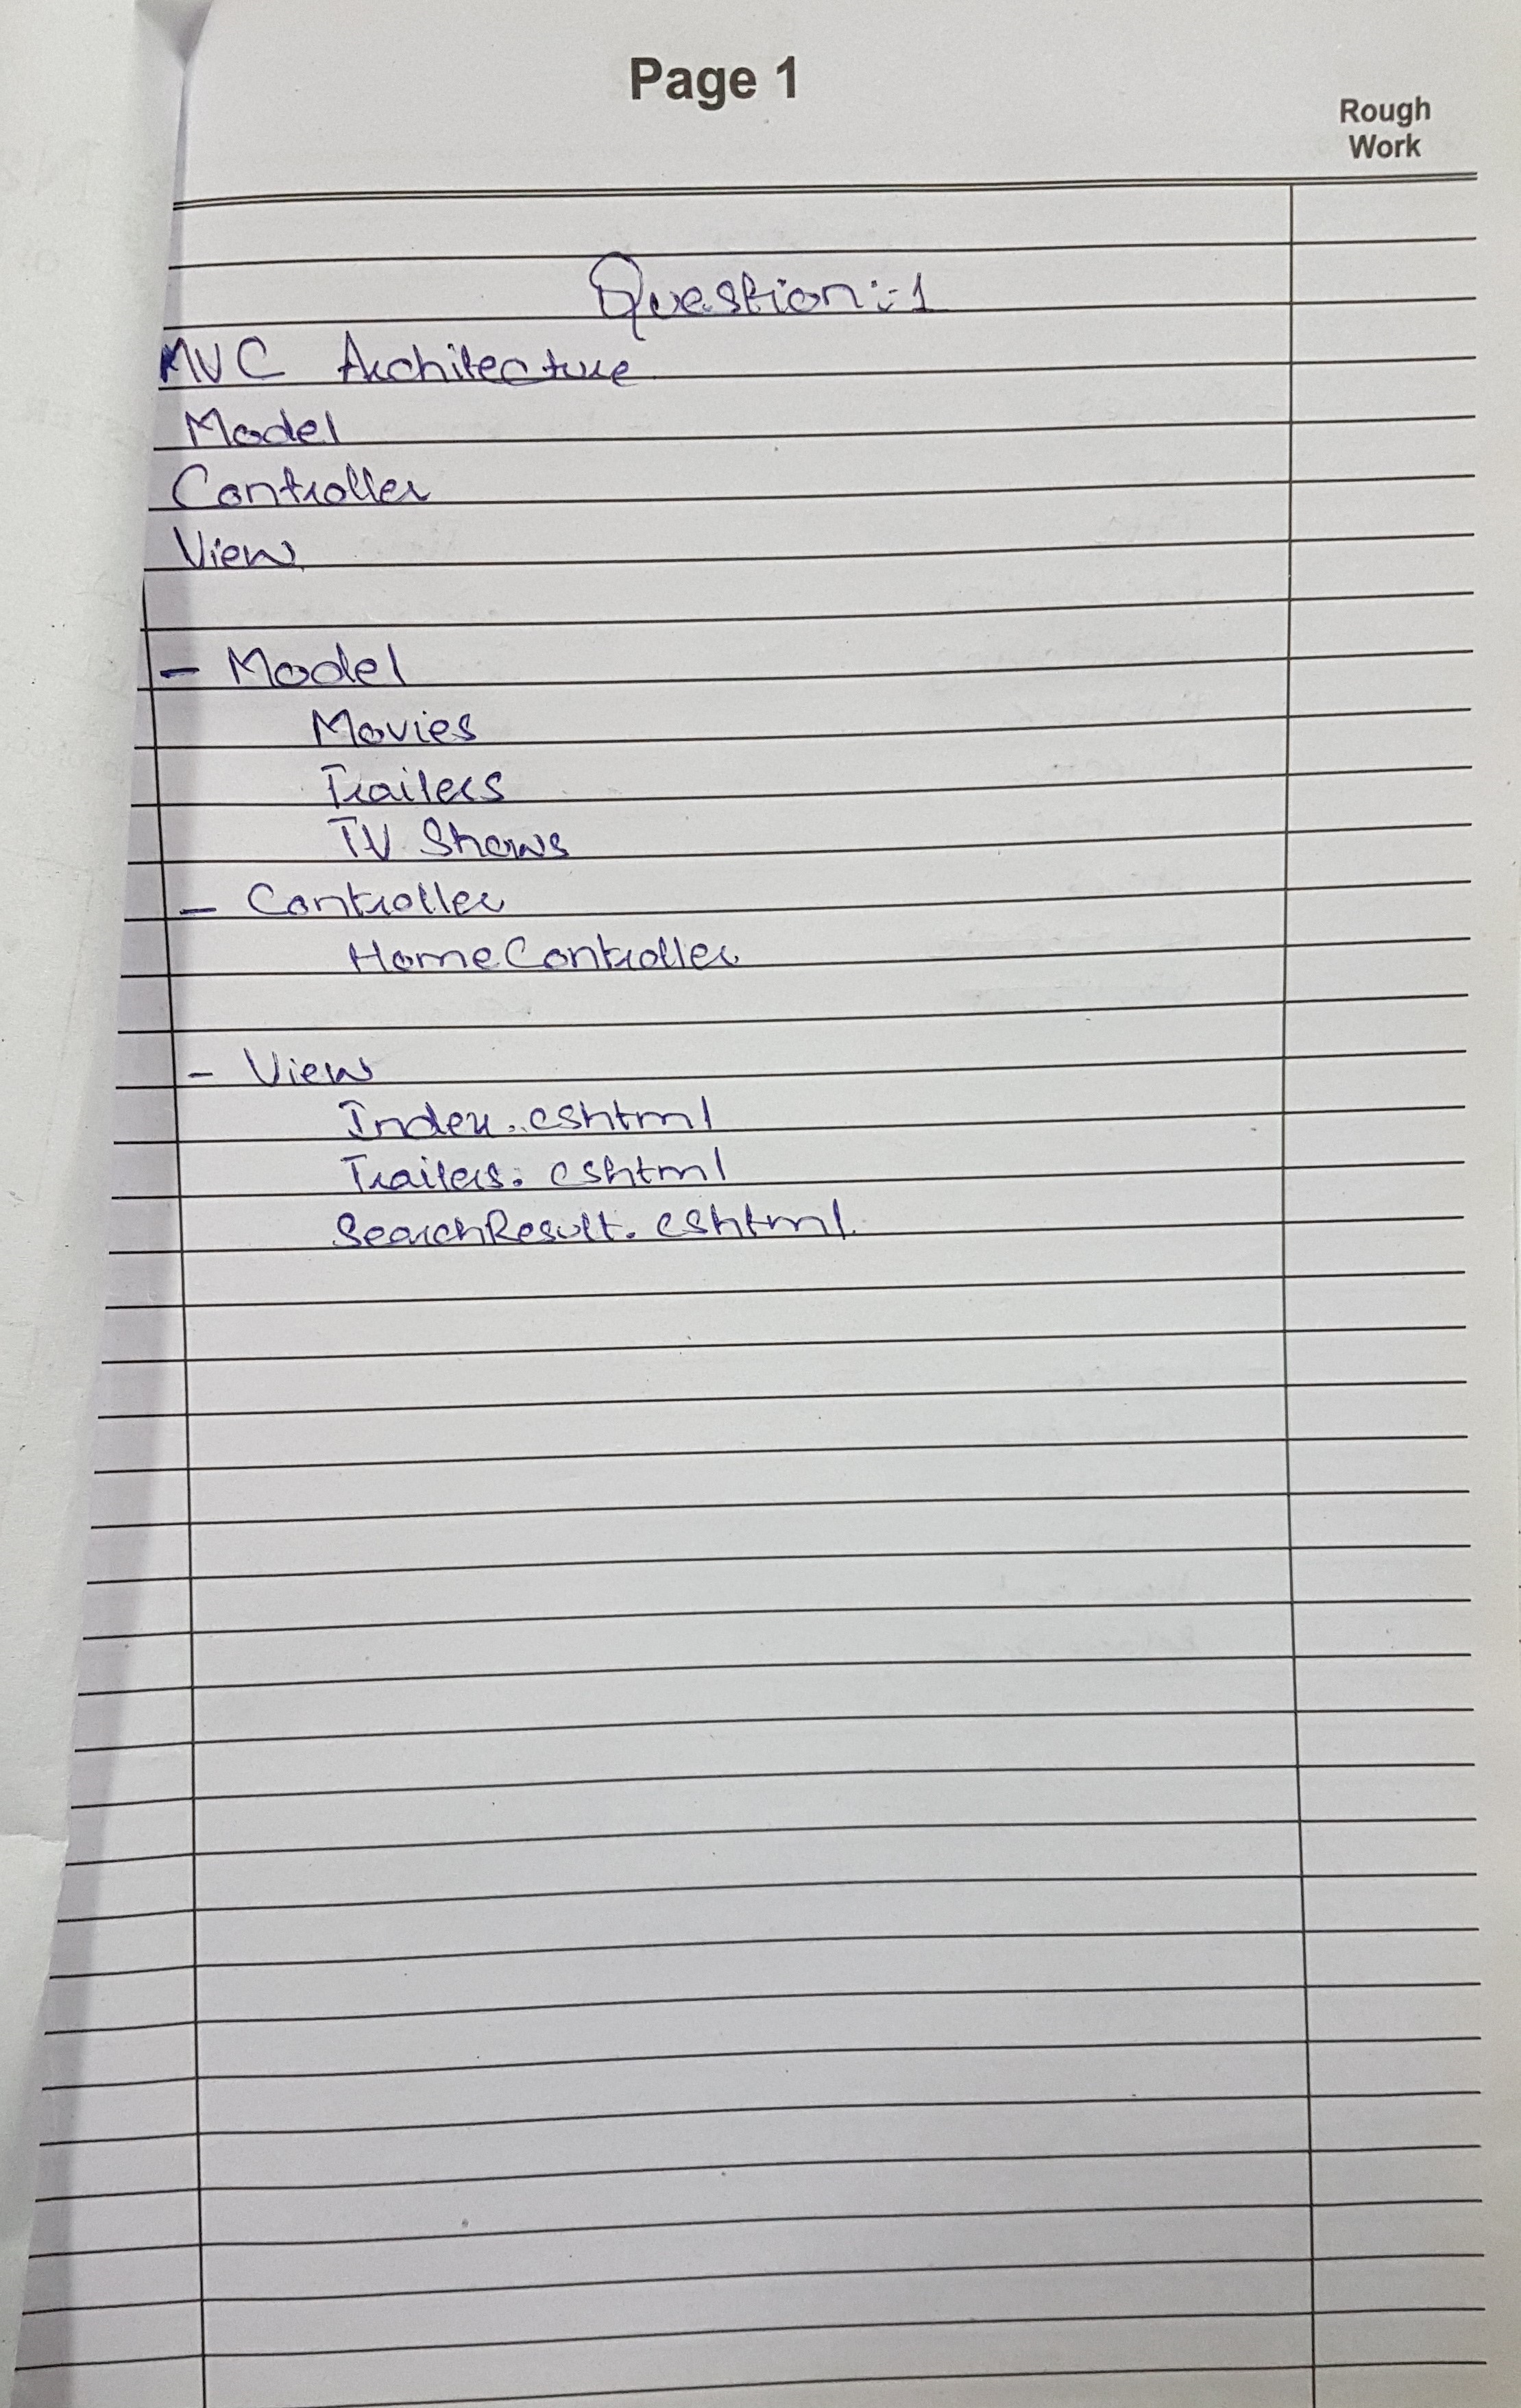 Page 1
Rough
Work
Question:-1
MVC Architecture
Model
Controller
View
- Model
Movies
Trailers
TV Shows
- Controller
HomeController
- View
Index.cshtml
Trailers.cshtml
SearchResult.cshtml